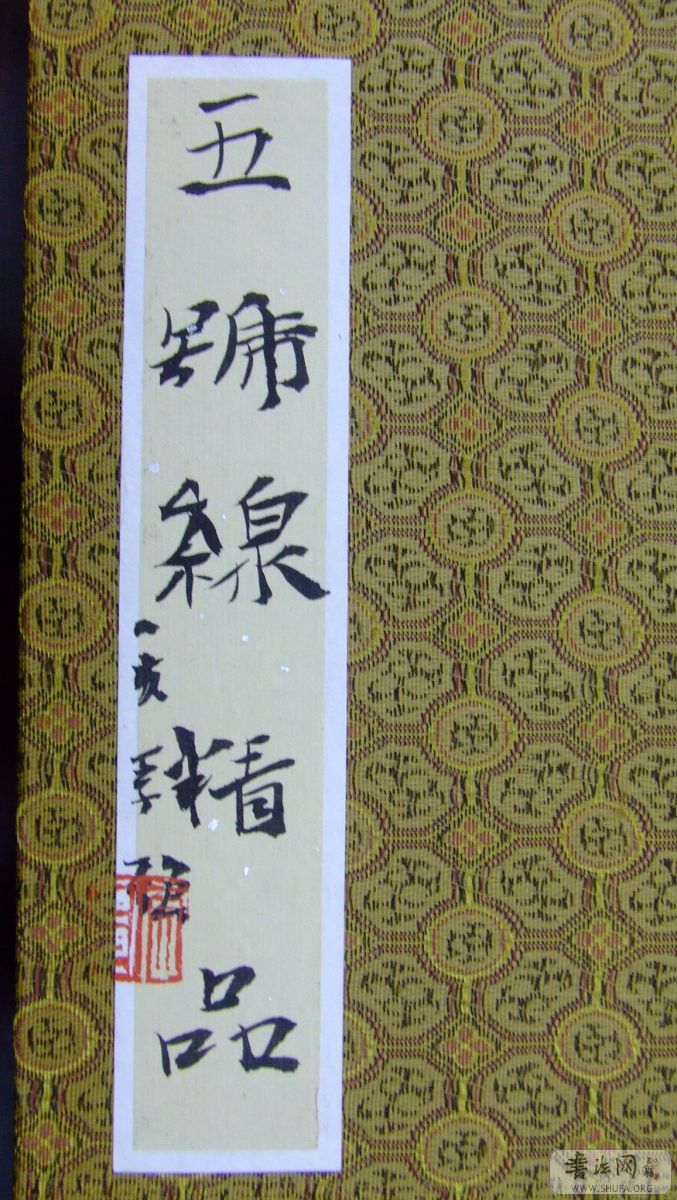 五號線精品
書法网
WWW.SHUFA.ORG